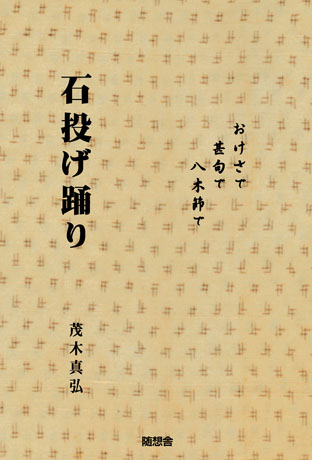 おけさで
甚句で
八木節で
石投げ踊り
茂木真弘
随想舎